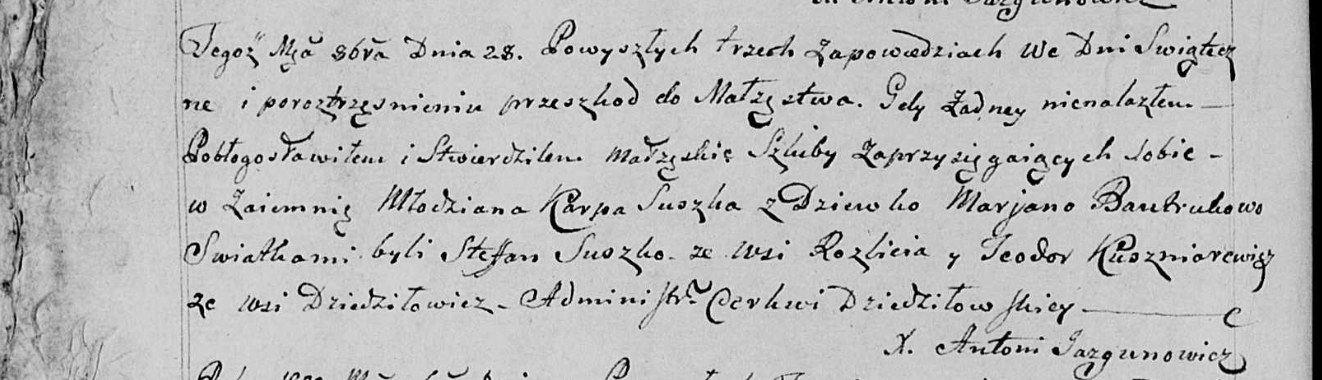 X. Antoni Jazgunowicz
Tegoż Mςa 8bra Dnia 28. Powyszłych trzech Zapowiedziach We Dni Swiątecz
ne i poroztrzęsnieniu przeszkod do Małżęstwa. Gdy Żadney nienalazłem.—
Pobłogosławiłem i Stwierdziłem małżęskię Szluby Zaprzysięgaiących sobie -
w Zaiemnię Młodziana Karpa Suszka z Dziewko Marjano Bautrukowo
Swiatkami byli Steffan Suszko ze wsi Rozlicia y Teodor Kuszniarewicz
ze wsi Dziedziłowicz - Administr. Cerkwi Dziedziłowskiey —
X. Antoni Jazgunowicz